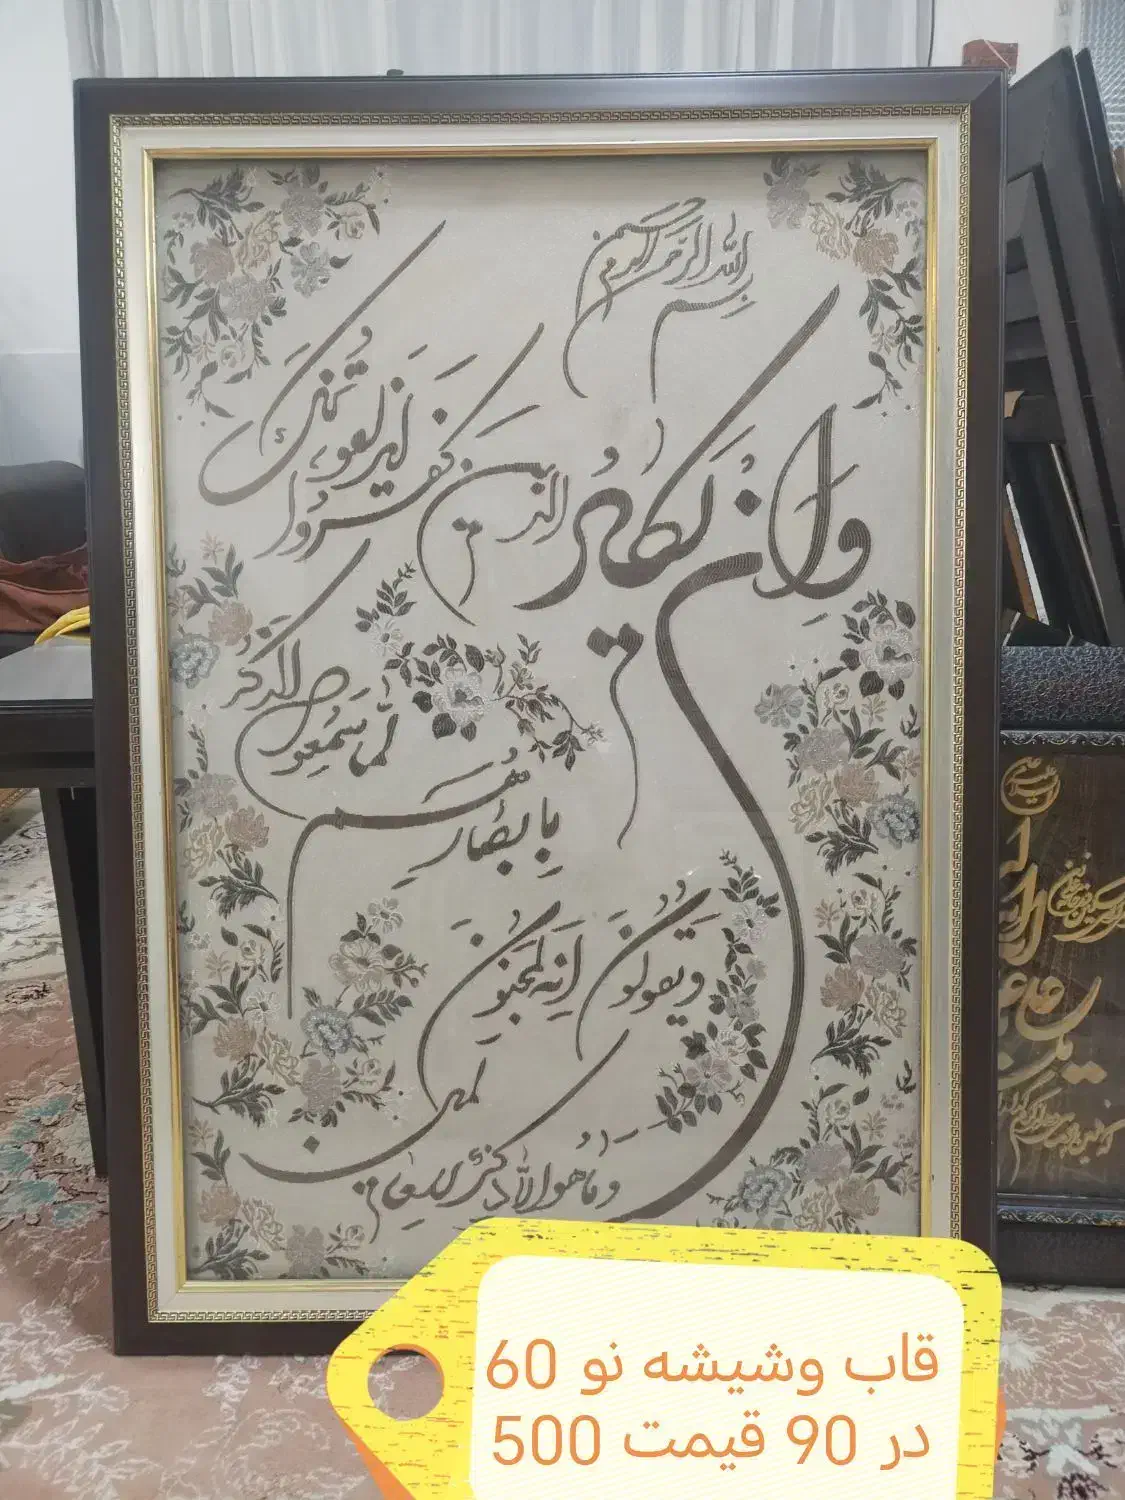 بسم الله الرحمن الرحیم
وان یکاد الذین کفروا لیزلقونک
بابصارهم لما سمعوا الذکر
ویقولون انه لمجنون
وما هو الا ذکر للعالمین
قاب وشیشه نو 60
در 90 قیمت 500